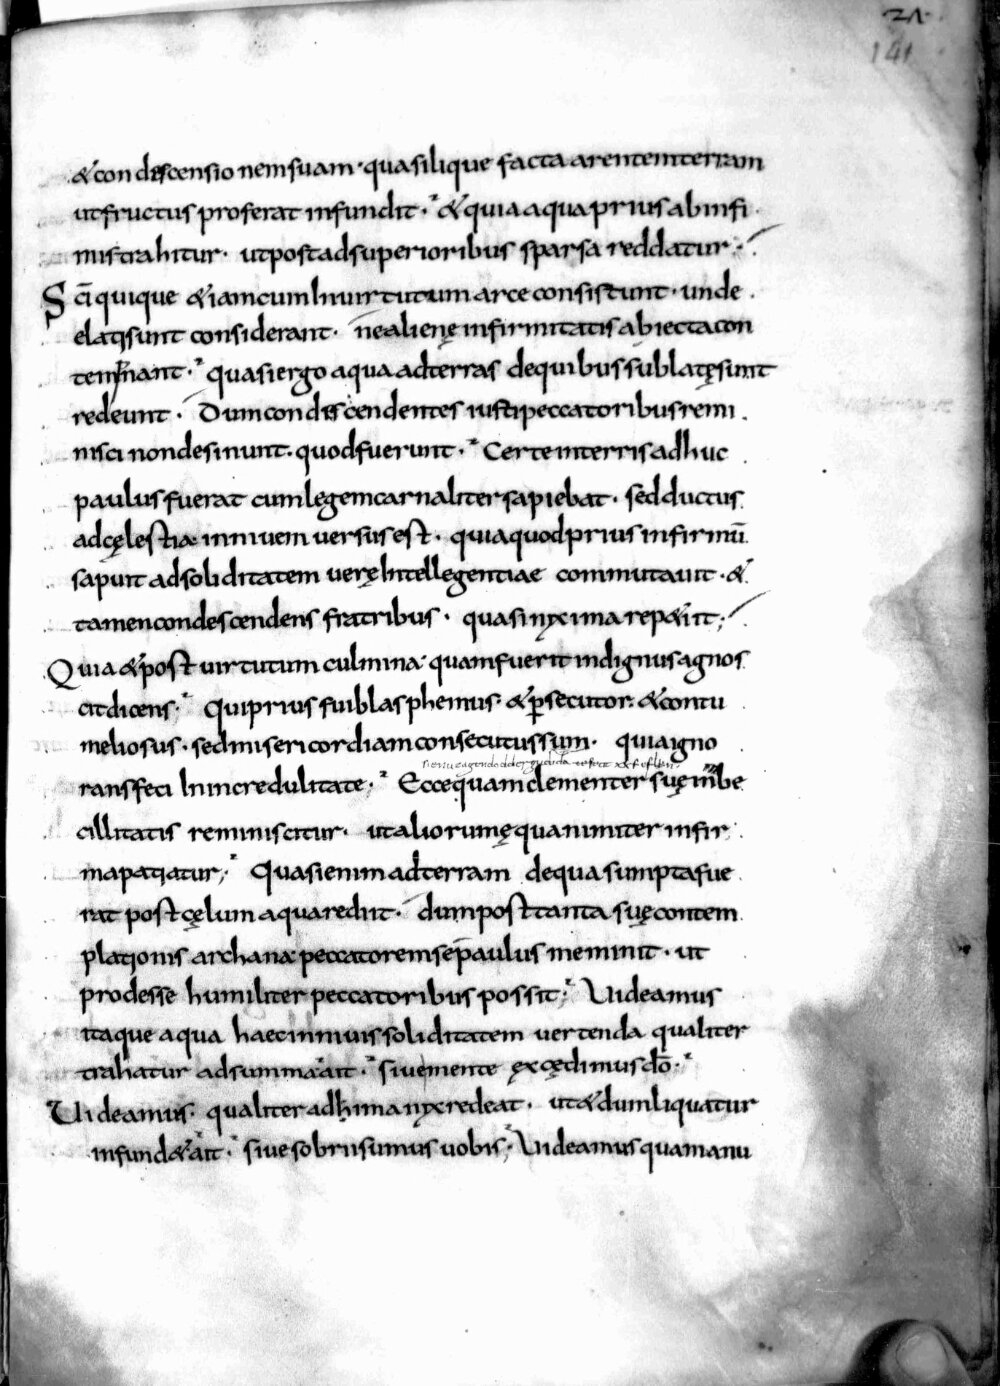 141
& condiscensionem suam · quasi lique facta arentem terram
ut fructus proferat infundit · & quia aqua prius ab infi
mis trahitur · ut post ad superioribus sparsa reddatur ·
Sc̄i quique & iam cum In uirtutum arce consistunt · unde
elati sunt considerant · ne alienę infirmitatis abiecta con
temnant · quasi ergo aqua ad terras de quibus sublatę sunt
redeunt · Dum condiscendentes iusti peccatoribus remi
nisci non desinunt · quod fuerunt · Certe in terris adhuc
paulus fuerat cum legem carnaliter sapiebat · sed ductus
ad cęlestia in niuem uersus est · quia quod prius infirmū
sapuit ad soliditatem uerę Intellegentiae commutauit · &
tamen condescendens fratribus · quasi nyx ima rep&iit ;
Quia & post uirtutum culmina quam fuerit indignus agnos
cit dicens ; Qui prius fui blasphemus · & p̄secutor · & contu
meliosus · sed misericordiam consecutus sum · quia igno
rans feci In incredulitate · Ecce quam clementer suę inbe
cillitatis reminiscitur · ut aliorum ęquanimiter infir
ma patiatur ; Quasi enim ad terram de qua sumpta fue
rat post cęlum aqua rediit · dum post tanta suę contem
plationis archana peccatorem se paulus meminit · ut
prodesse humiliter peccatoribus possit ; Uideamus
itaque aqua haec in niuis soliditatem uertenda qualiter
trahatur ad summa ait · siue mente excędimus dō ·
Uideamus qualiter ad hima nyx redeat · ut & dum liquatur
infund& ait · siue sobrii sumus uobis ; Uideamus qua manu